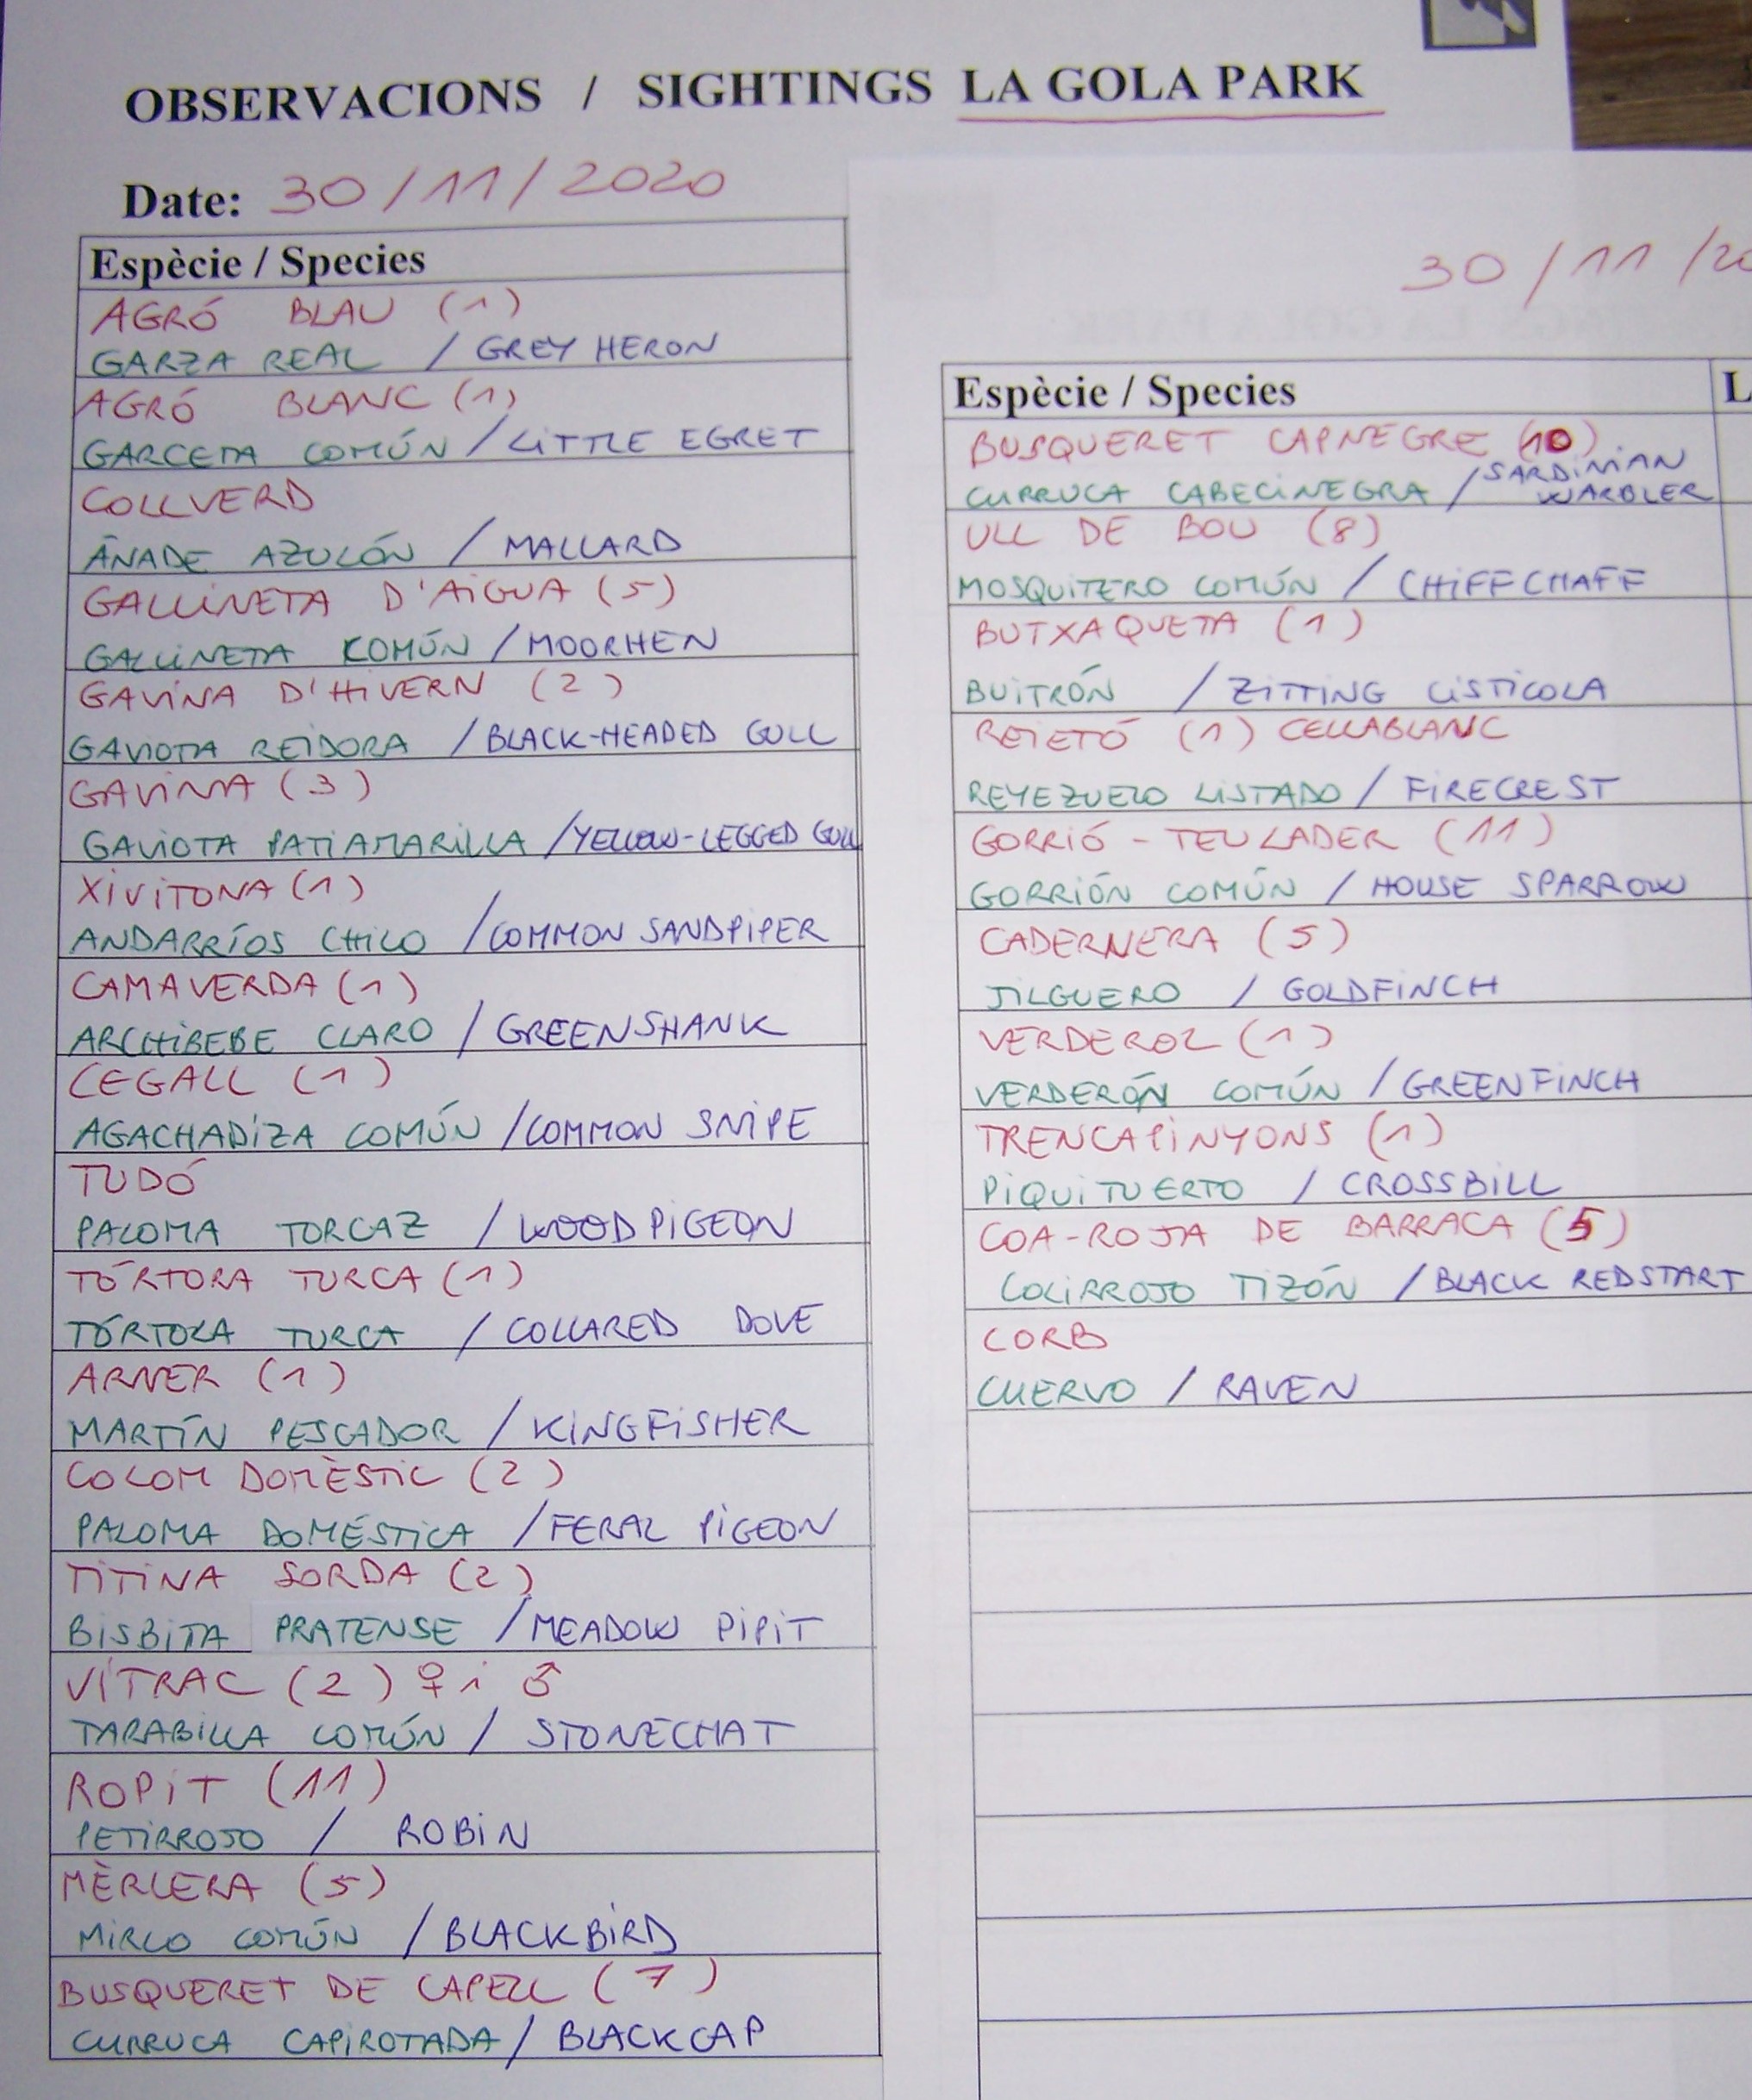 OBSERVACIONS / SIGHTINGS LA GOLA PARK
Date: 30/11/2020
Espècie / Species
AGRÓ BLAU (1)
GARZA REAL / GREY HERON
AGRÓ BLANC (1)
GARCETA COMÚN / LITTLE EGRET
COLLVERD
ÁNADE AZULÓN / MALLARD
GALLINETA D'AIGUA (5)
GALLINETA COMÚN / MOORHEN
GAVINA D'HIVERN (2)
GAVIOTA REIDORA / BLACK-HEADED GULL
GAVINA (3)
GAVIOTA PATIAMARILLA / YELLOW-LEGGED GULL
XIVITONA (1)
ANDARRÍOS CHICO / COMMON SANDPIPER
CAMAVERDA (1)
ARCHIBEBE CLARO / GREENSHANK
CEGALL (1)
AGACHADIZA COMÚN / COMMON SNIPE
TUDÓ
PALOMA TORCAZ / WOOD PIGEON
TÓRTORA TURCA (1)
TÓRTOLA TURCA / COLLARED DOVE
ARNER (1)
MARTÍN PESCADOR / KINGFISHER
COLOM DOMÈSTIC (2)
PALOMA DOMÉSTICA / FERAL PIGEON
TITINA SORDA (2)
BISBITA PRATENSE / MEADOW PIPIT
VÍTRAC (2) ♀ i ♂
TARABILLA COMÚN / STONECHAT
ROPIT (11)
PETIRROJO / ROBIN
MÈRLERA (5)
MIRLO COMÚN / BLACKBIRD
BUSQUERET DE CAPELL (7)
CURRUCA CAPIROTADA / BLACKCAP
30/11/20
Espècie / Species L
BUSQUERET CAPNEGRE (10)
CURRUCA CABECINEGRA / SARDINIAN WARBLER
ULL DE BOU (8)
MOSQUITERO COMÚN / CHIFFCHAFF
BUTXAQUETA (1)
BUITRÓN / ZITTING CISTICOLA
REIETÓ (1) CELLABLANC
REYEZUELO LISTADO / FIRECREST
GORRIÓ - TEULADER (11)
GORRIÓN COMÚN / HOUSE SPARROW
CADERNERA (5)
JILGUERO / GOLDFINCH
VERDEROL (1)
VERDERÓN COMÚN / GREENFINCH
TRENCAPINYONS (1)
PIQUITUERTO / CROSSBILL
COA-ROJA DE BARRACA (5)
COLIRROJO TIZÓN / BLACK REDSTART
CORB
CUERVO / RAVEN